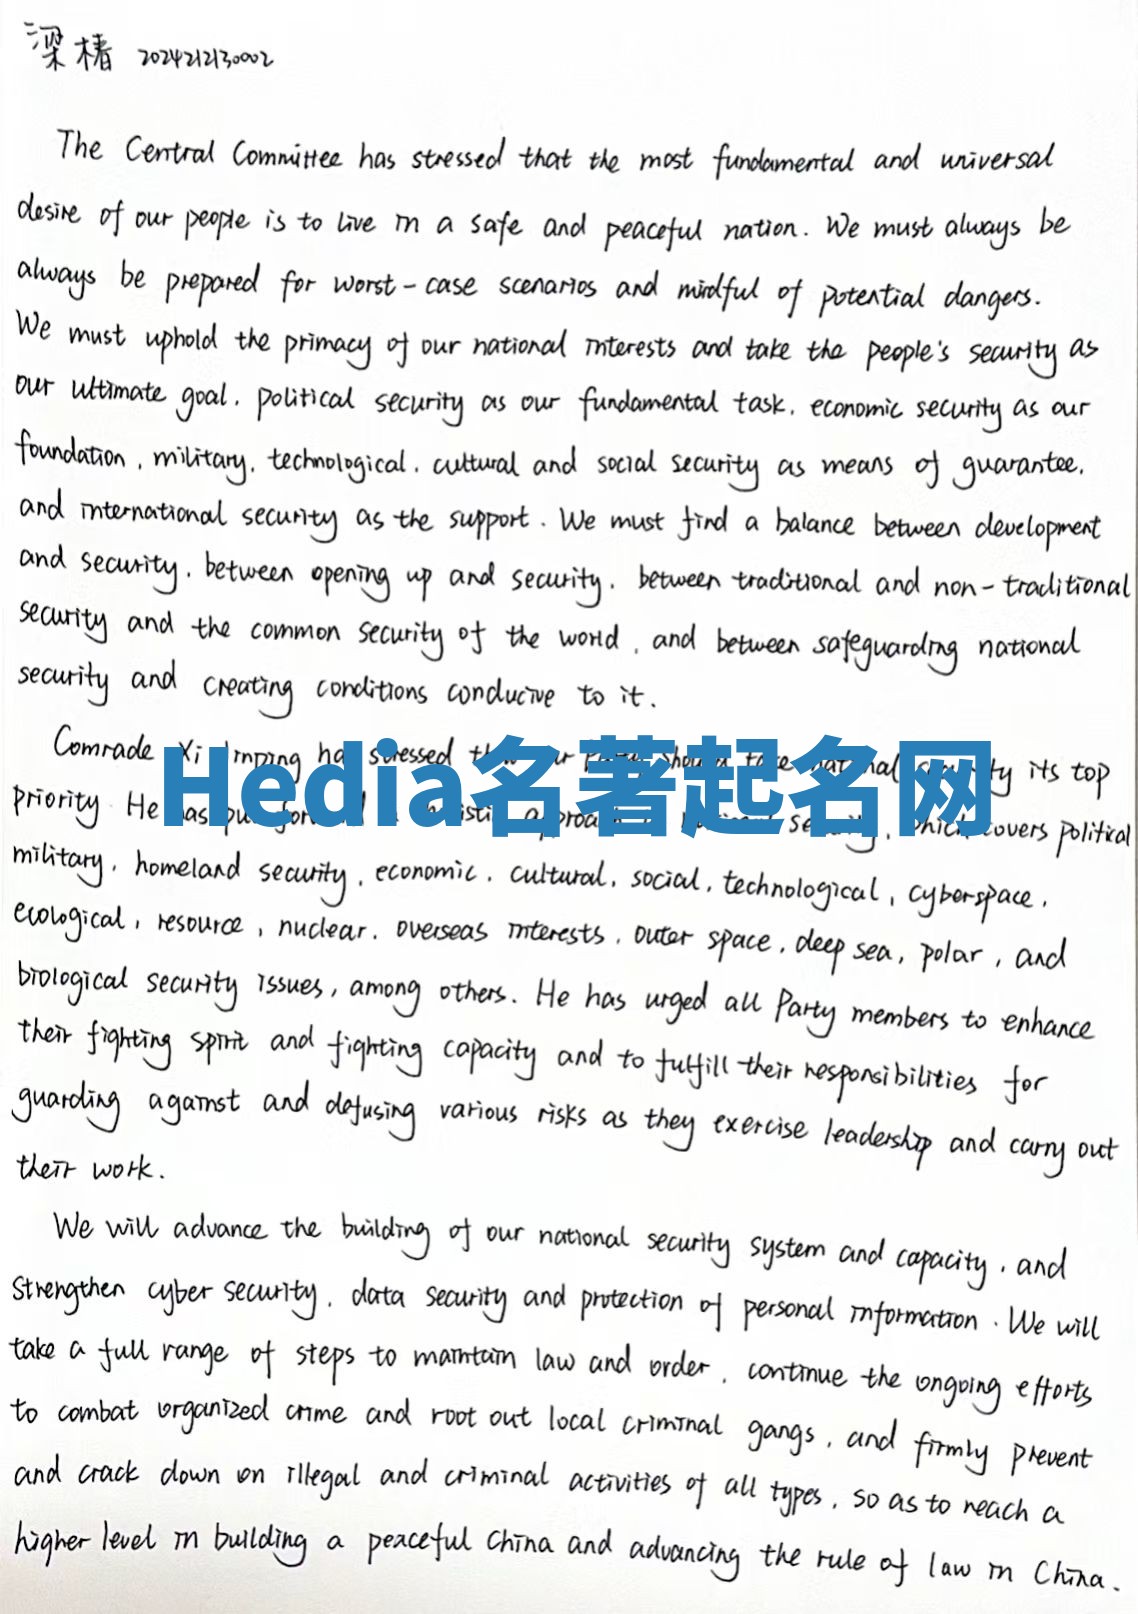 梁椿 2024212130002
The Central Committee has stressed that the most fundamental and universal
desire of our people is to live in a safe and peaceful nation. We must always be
always be prepared for worst-case scenarios and mindful of potential dangers.
We must uphold the primacy of our national interests and take the people's security as
our ultimate goal, political security as our fundamental task, economic security as our
foundation, military, technological, cultural and social security as means of guarantee,
and international security as the support. We must find a balance between development
and security, between opening up and security, between traditional and non-traditional
security and the common security of the world, and between safeguarding national
security and creating conditions conducive to it.
Comrade Xi Jinping has stressed should take national its top
Hedia名著起名网
priority. He has put which covers political
military, homeland security, economic, cultural, social, technological, cyberspace,
ecological, resource, nuclear, overseas interests, outer space, deep sea, polar, and
biological security issues, among others. He has urged all Party members to enhance
their fighting spirit and fighting capacity and to fulfill their responsibilities for
guarding against and defusing various risks as they exercise leadership and carry out
their work.
We will advance the building of our national security system and capacity, and
strengthen cyber security, data security and protection of personal information. We will
take a full range of steps to maintain law and order, continue the ongoing efforts
to combat organized crime and root out local criminal gangs, and firmly prevent
and crack down on illegal and criminal activities of all types, so as to reach a
higher level in building a peaceful China and advancing the rule of law in China.